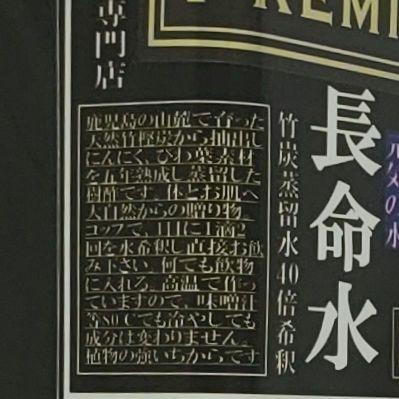 PREMI
専門店
長命水
竹炭蒸留水40倍希釈
鹿児島の山麓で育った
天然竹樫炭から抽出し
にんにく、びわ葉素材
を五年熟成し蒸留した
樹酢です。体とお肌へ
大自然からの贈り物。
コップで、1日に1滴2
回を水希釈し直接お飲
み下さい。何でも飲物
に入れる。高温で作っ
ていますので、味噌汁
等80℃でも冷やしても
成分は変わりません。
植物の強いちからです